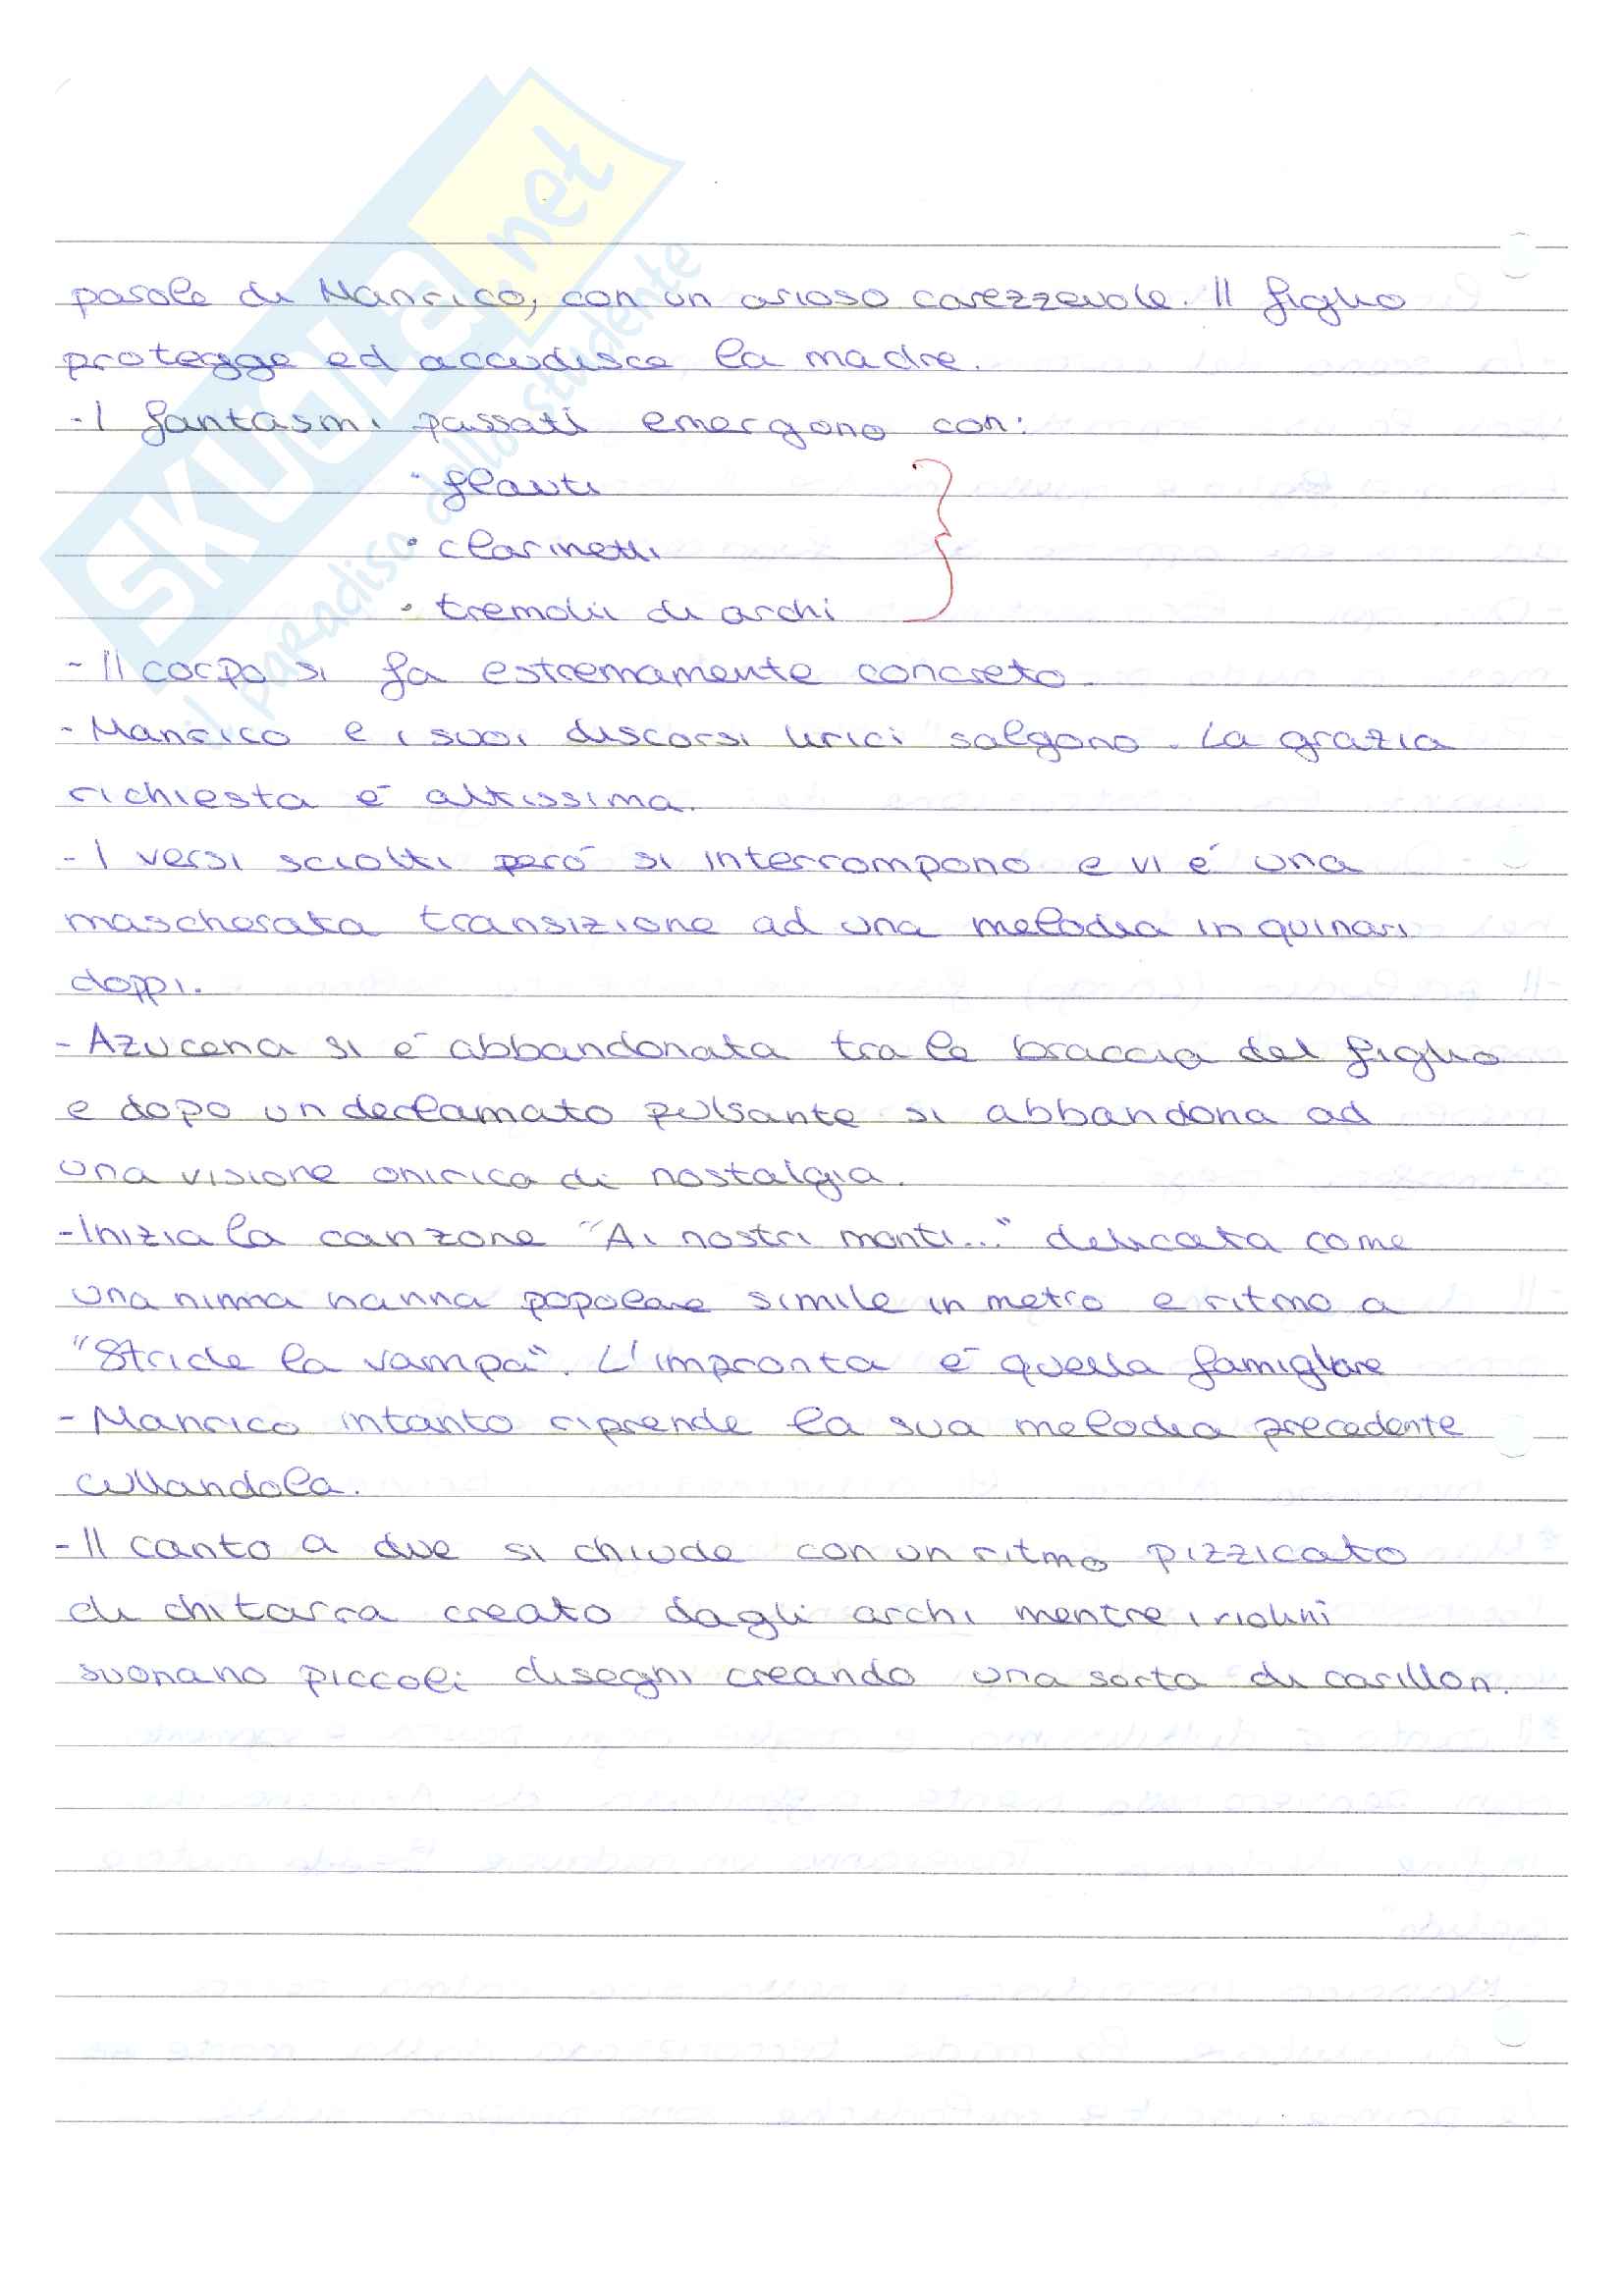 SKUOLA.net
il paradiso dello studente
parole di Manrico, con un arioso carezzevole. Il figlio
protegge ed accudisce la madre.
- I fantasmi passati emergono con:
· flauti
· clarinetti
· tremolii di archi
- Il corpo si fa estremamente concreto.
- Manrico e i suoi discorsi lirici salgono. La grazia
richiesta è altissima.
- I versi sciolti però si interrompono e vi è una
mascherata transizione ad una melodia in quinari
doppi.
- Azucena si è abbandonata tra le braccia del figlio
e dopo un declamato pulsante si abbandona ad
una visione onirica di nostalgia.
- Inizia la canzone "Ai nostri monti..." delicata come
una ninna nanna popolare simile in metro e ritmo a
"Stride la vampa". L'impronta è quella famigliare
- Manrico intanto riprende la sua melodia precedente
cullandola.
- Il canto a due si chiude con un ritmo pizzicato
di chitarra creato dagli archi mentre i violini
suonano piccoli disegni creando una sorta di carillon.